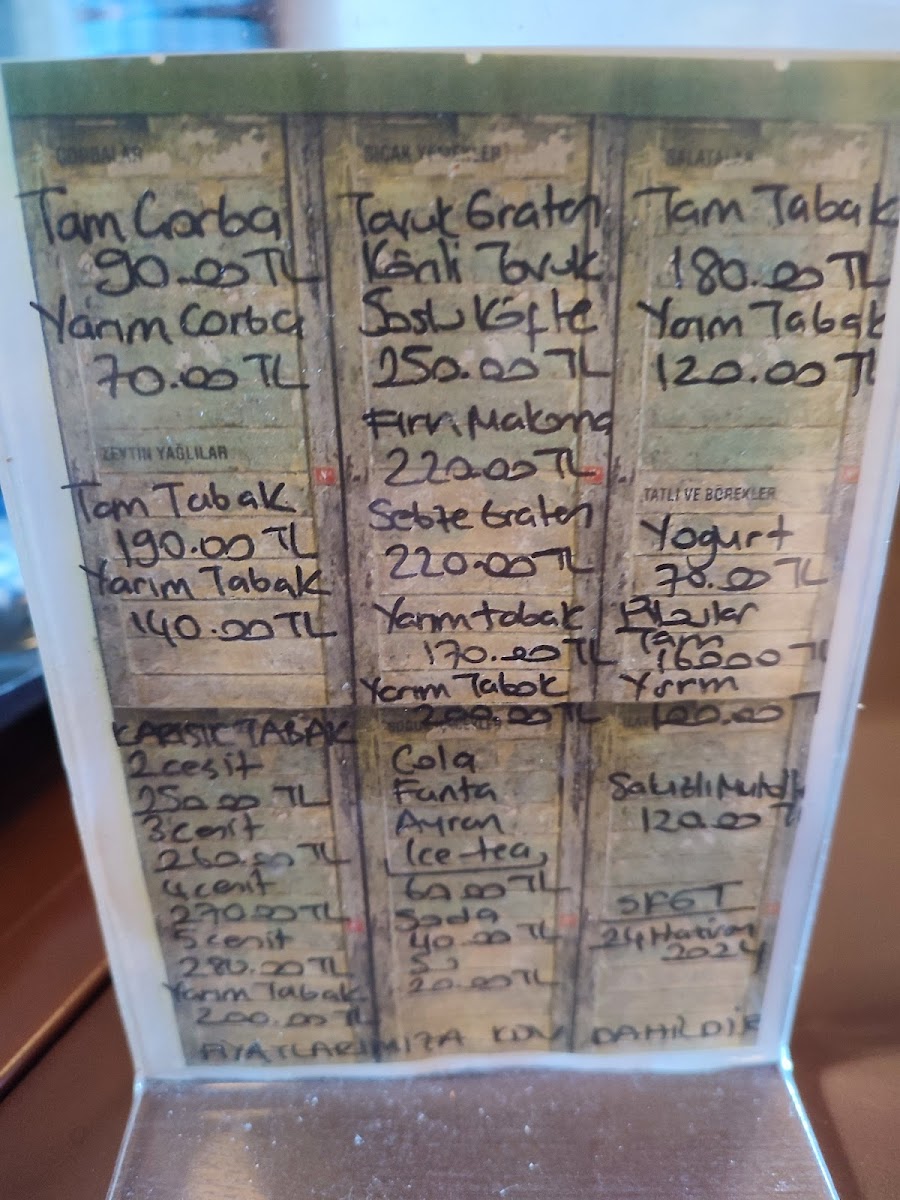 ÇORBALAR
Tam Çorba
90.00 TL
Yarım Çorba
70.00 TL
ZEYTİN YAĞLILAR
Tam Tabak
190.00 TL
Yarım Tabak
140.00 TL
SICAK YEMEKLER
Tavuk Graten
Körili Tavuk
Soslu Köfte
250.00 TL
Fırın Makarna
220.00 TL
Sebze Graten
220.00 TL
Yarım tabak
170.00 TL
Yarım Tabak
200.00 TL
SALATALAR
Tam Tabak
180.00 TL
Yarım Tabak
120.00 TL
TATLI VE BÖREKLER
Yogurt
70.00 TL
Tam
160.00 TL
Yarım
100.00
KARIŞIK TABAK
2 çeşit
250.00 TL
3 çeşit
260.00 TL
4 çeşit
270.00 TL
5 çeşit
280.00 TL
Yarım Tabak
200.00 TL
Cola
Fanta
Ayran
Ice-tea
60.00 TL
Soda
40.00 TL
Su
20.00 TL
120.00 T
SFGT
24 Haziran
2024
FİYATLARIMIZA KDV DAHİLDİR